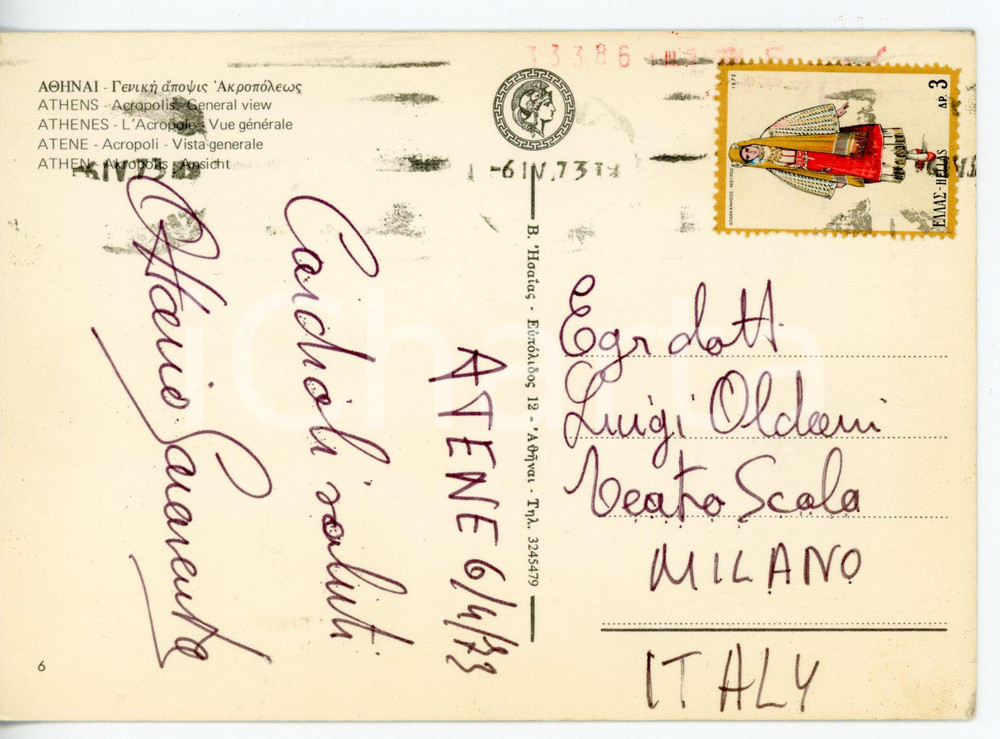 33386
ΑΘΗΝΑΙ - Γενική ἄποψις Ἀκροπόλεως
ATHENS - Acropolis. General view
ATHENES - L'Acropole. Vue générale
ATENE - Acropoli - Vista generale
ATHEN - Akropolis - Ansicht
-6IV.73
-6IV.73
1972
ΔΡ. 3
ΕΛΛΑΣ-HELLAS
Cordiali saluti
ATENE 6/4/73
Β. Ἡσαΐας - Εὐπόλιδος 12 - Ἀθῆναι - Τηλ. 3245479
Egr dott
Luigi Oldani
Teatro Scala
MILANO
ITALY
6
iCharta